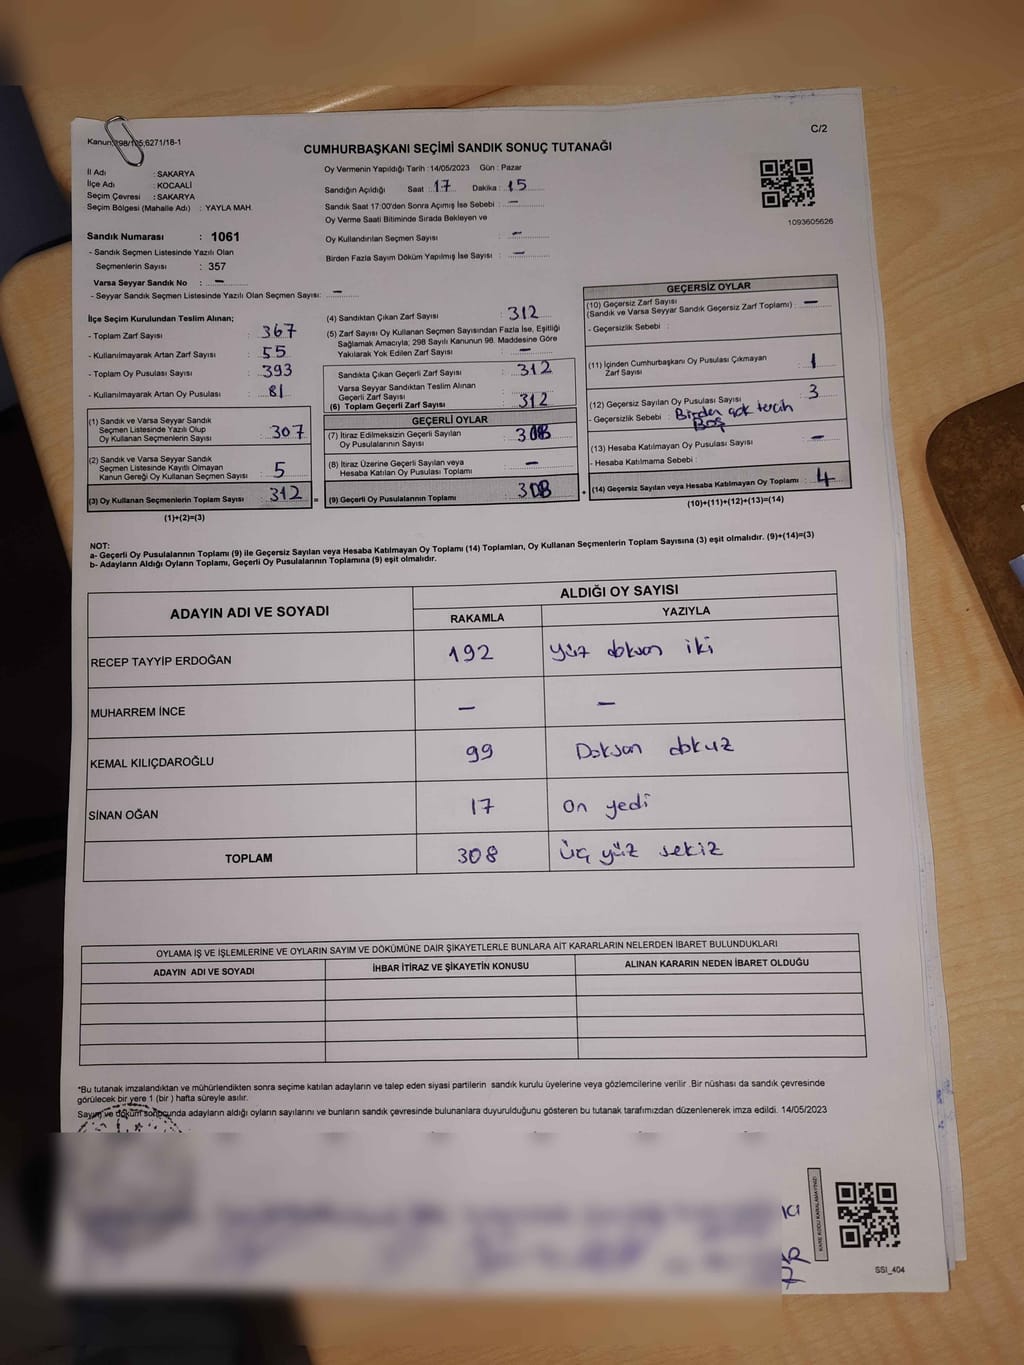 C/2
Kanun:298/105,6271/18-1
CUMHURBAŞKANI SEÇİMİ SANDIK SONUÇ TUTANAĞI
İl Adı : SAKARYA
İlçe Adı : KOCAALİ
Seçim Çevresi : SAKARYA
Seçim Bölgesi (Mahalle Adı) : YAYLA MAH.
Sandık Numarası : 1061
- Sandık Seçmen Listesinde Yazılı Olan
Seçmenlerin Sayısı : 357
Varsa Seyyar Sandık No : –
- Seyyar Sandık Seçmen Listesinde Yazılı Olan Seçmen Sayısı: –
Oy Vermenin Yapıldığı Tarih :14/05/2023 Gün : Pazar
Sandığın Açıldığı Saat : 17 Dakika : 15
Sandık Saat 17:00'den Sonra Açımış İse Sebebi : –
Oy Verme Saati Bitiminde Sırada Bekleyen ve
Oy Kullandırılan Seçmen Sayısı : –
Birden Fazla Sayım Döküm Yapılmış İse Sayısı : –
1093605626
İlçe Seçim Kurulundan Teslim Alınan;
- Toplam Zarf Sayısı : 367
- Kullanılmayarak Artan Zarf Sayısı : 55
- Toplam Oy Pusulası Sayısı : 393
- Kullanılmayarak Artan Oy Pusulası : 81
(1) Sandık ve Varsa Seyyar Sandık
Seçmen Listesinde Yazılı Olup
Oy Kullanan Seçmenlerin Sayısı : 307
(2) Sandık ve Varsa Seyyar Sandık
Seçmen Listesinde Kayıtlı Olmayan
Kanun Gereği Oy Kullanan Seçmen Sayısı : 5
(3) Oy Kullanan Seçmenlerin Toplam Sayısı : 312 =
(1)+(2)=(3)
(4) Sandıktan Çıkan Zarf Sayısı : 312
(5) Zarf Sayısı Oy Kullanan Seçmen Sayısından Fazla İse, Eşitliği
Sağlamak Amacıyla; 298 Sayılı Kanunun 98. Maddesine Göre
Yakılarak Yok Edilen Zarf Sayısı : –
Sandıkta Çıkan Geçerli Zarf Sayısı : 312
Varsa Seyyar Sandıktan Teslim Alınan
Geçerli Zarf Sayısı :
(6) Toplam Geçerli Zarf Sayısı : 312
GEÇERLİ OYLAR
(7) İtiraz Edilmeksizin Geçerli Sayılan
Oy Pusulasının Sayısı : 308
(8) İtiraz Üzerine Geçerli Sayılan veya
Hesaba Katılan Oy Pusulası Toplamı : –
(9) Geçerli Oy Pusulalarının Toplamı : 308 +
GEÇERSİZ OYLAR
(10) Geçersiz Zarf Sayısı
(Sandık ve Varsa Seyyar Sandık Geçersiz Zarf Toplamı) : –
- Geçersizlik Sebebi :
(11) İçinden Cumhurbaşkanı Oy Pusulası Çıkmayan
Zarf Sayısı : 1
(12) Geçersiz Sayılan Oy Pusulası Sayısı : 3
- Geçersizlik Sebebi : Birden çok tercih
Boş
(13) Hesaba Katılmayan Oy Pusulası Sayısı : –
- Hesaba Katılmama Sebebi :
(14) Geçersiz Sayılan veya Hesaba Katılmayan Oy Toplamı : 4
(10)+(11)+(12)+(13)=(14)
NOT:
a- Geçerli Oy Pusulalarının Toplamı (9) ile Geçersiz Sayılan veya Hesaba Katılmayan Oy Toplamı (14) Toplamları, Oy Kullanan Seçmenlerin Toplam Sayısına (3) eşit olmalıdır. (9)+(14)=(3)
b- Adayların Aldığı Oyların Toplamı, Geçerli Oy Pusulalarının Toplamına (9) eşit olmalıdır.
ADAYIN ADI VE SOYADI
ALDIĞI OY SAYISI
RAKAMLA YAZIYLA
RECEP TAYYİP ERDOĞAN 192 yüz doksan iki
MUHARREM İNCE – –
KEMAL KILIÇDAROĞLU 99 Doksan dokuz
SİNAN OĞAN 17 On yedi
TOPLAM 308 üç yüz sekiz
OYLAMA İŞ VE İŞLEMLERİNE VE OYLARIN SAYIM VE DÖKÜMÜNE DAİR ŞİKAYETLERLE BUNLARA AİT KARARLARIN NELERDEN İBARET BULUNDUKLARI
ADAYIN ADI VE SOYADI İHBAR İTİRAZ VE ŞİKAYETİN KONUSU ALINAN KARARIN NEDEN İBARET OLDUĞU
*Bu tutanak imzalandıktan ve mühürlendikten sonra seçime katılan adayların ve talep eden siyasi partilerin sandık kurulu üyelerine veya gözlemcilerine verilir .Bir nüshası da sandık çevresinde
görülecek bir yere 1 (bir ) hafta süreyle asılır.
Sayım ve döküm sonucunda adayların aldığı oyların sayılarını ve bunların sandık çevresinde bulunanlara duyurulduğunu gösteren bu tutanak tarafımızdan düzenlenerek imza edildi. 14/05/2023
KARE KODU KARALAMAYINIZ!
SSI_404